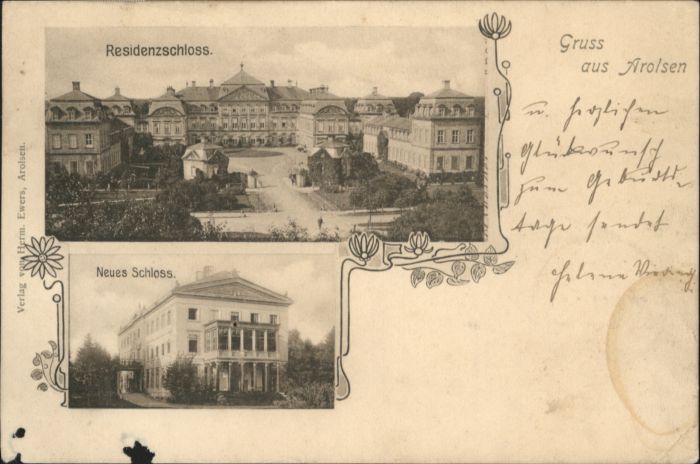 Residenzschloss.
Gruss
aus Arolsen
u. herzlichen
Glückwunsch
zum Geburts-
tage sendet
Helene
Neues Schloss.
Verlag von Herm. Ewers, Arolsen.